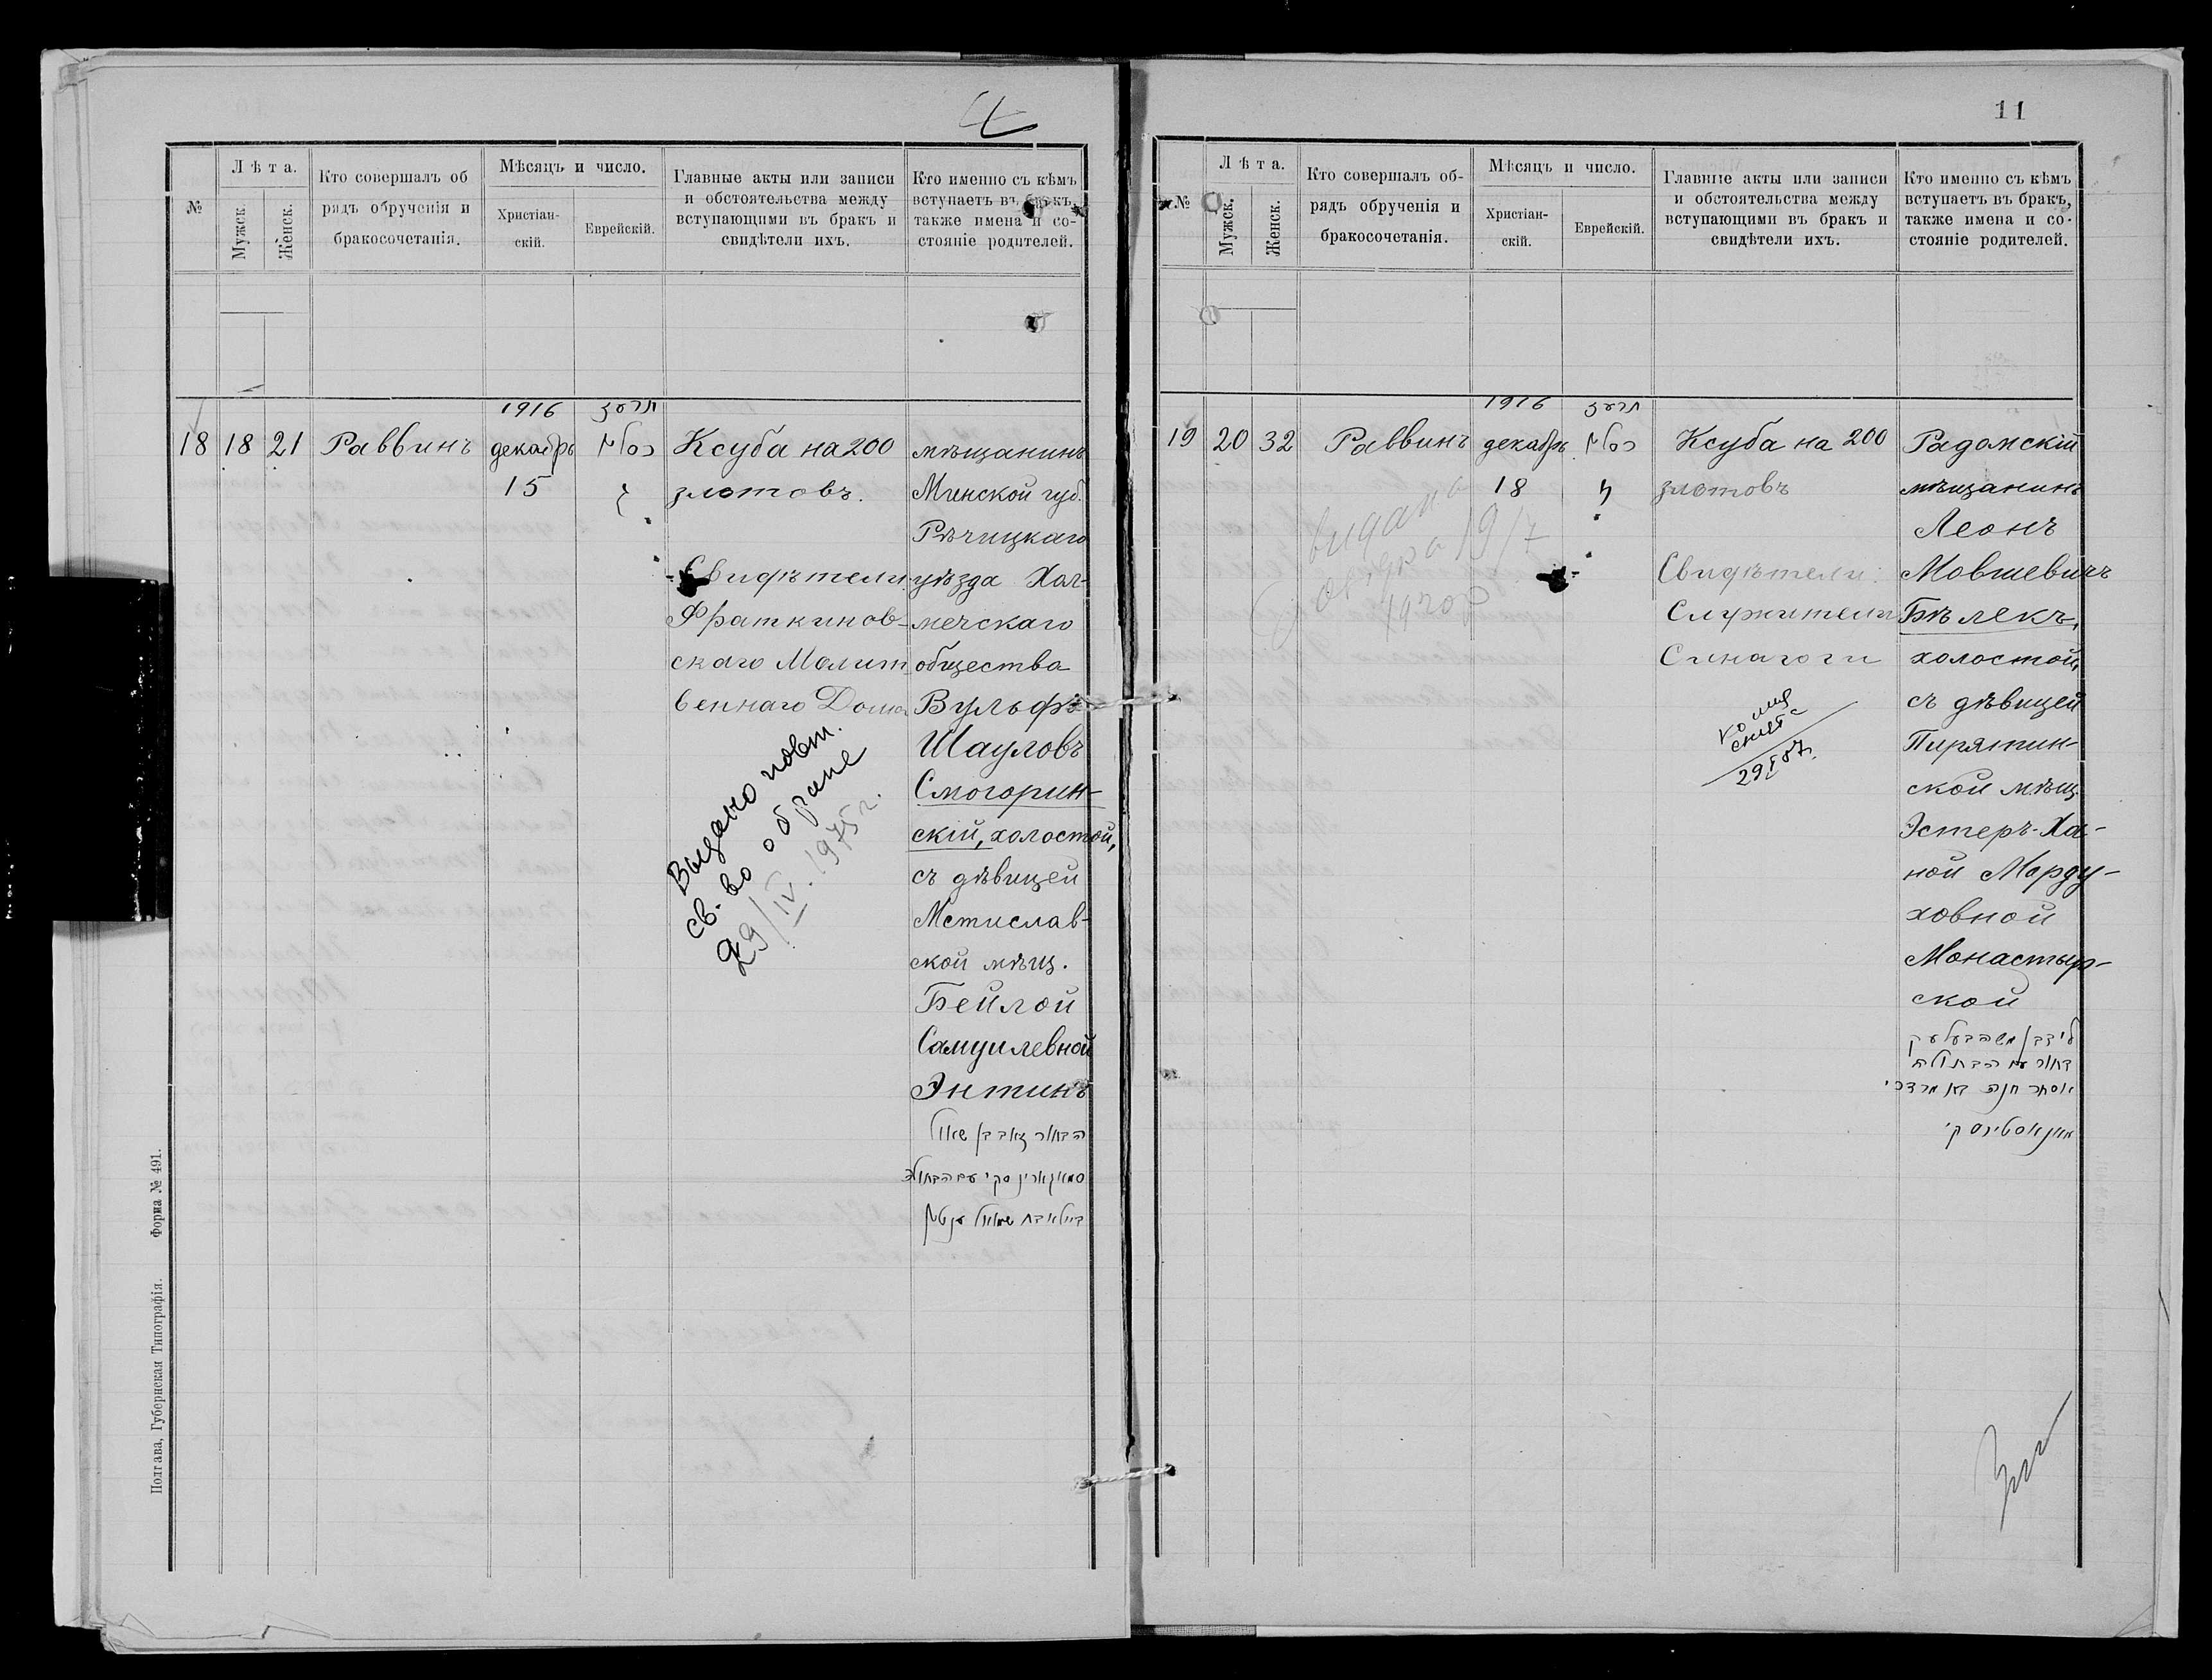 №
Лѣта.
Мужск.
Женск.
Кто совершалъ об
рядъ обрученія и
бракосочетанія.
Мѣсяцъ и число.
Христіан-
скій.
Еврейскій.
Главные акты или записи
и обстоятельства между
вступающими въ бракъ и
свидѣтели ихъ.
Кто именно съ кѣмъ
вступаетъ въ бракъ,
также имена и со-
стояніе родителей.
18
18
21
Раввинъ
1916
декабрь
15
כסלו
Ксуба на 200
злотовъ.
Свидѣтели:
Фраткинов-
скаго Молит
веннаго Дома
Выдано повт.
св-во о браке
29/IV.1975г.
мѣщанинъ
Минской губ.
Рѣчицкаго
уѣзда Хол-
мечскаго
общества
Вульфъ
Шауловъ
Смогорин-
скій, холостой,
съ дѣвицей
Мстислав-
ской мѣщ.
Бейлой
Самуилевной
Энтинъ
הבחור זאב בן שאול
סמאגארינסקי עם הבתולה
ביילא בת שמואל ענטין
Полтава, Губернская Типографія. Форма № 491.
11
№
Лѣта.
Мужск.
Женск.
Кто совершалъ об-
рядъ обрученія и
бракосочетанія.
Мѣсяцъ и число.
Христіан-
скій.
Еврейскій.
Главные акты или записи
и обстоятельства между
вступающими въ бракъ и
свидѣтели ихъ.
Кто именно съ кѣмъ
вступаетъ въ бракъ,
также имена и со-
стояніе родителей.
19
20
32
Раввинъ
1916
декабрь
18
כסלו
Ксуба на 200
злотовъ
Свидѣтели:
Служители
Синагоги
Радомскій
мѣщанинъ
Леонъ
Мовшевичъ
Бѣлекъ,
холостой,
съ дѣвицей
Пирятин-
ской мѣщ.
Эстеръ-Ха-
ной Морду-
ховной
Монастыр-
ской
בן משה בעלעק
בחור עם הבתולה
אסתר חנה בת מרדכי
מאנאסטירסקי